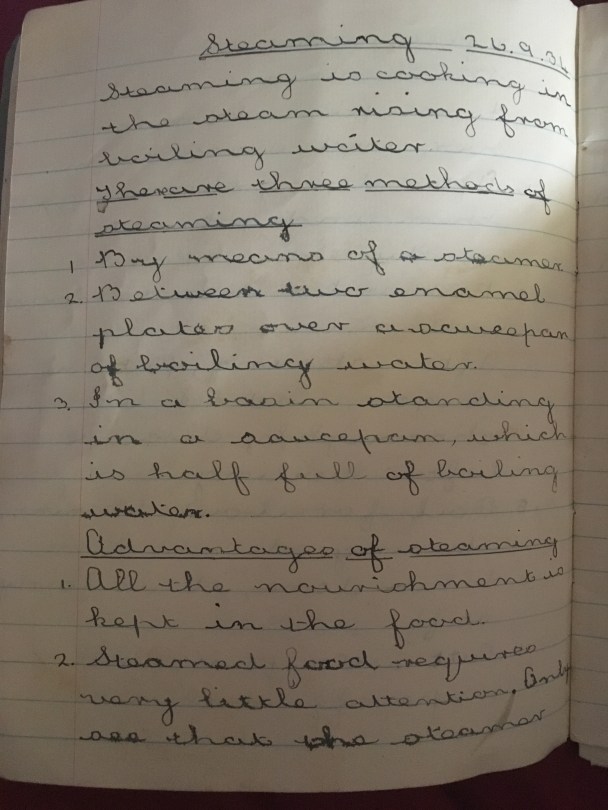 Steaming 26.9.32
Steaming is cooking in
the steam rising from
boiling water
There are three methods of
steaming
1 By means of a steamer
2. Between two enamel
plates over a saucepan
of boiling water.
3. In a basin standing
in a saucepan, which
is half full of boiling
water.
Advantages of steaming
1. All the nourichment is
kept in the food.
2. Steamed food requires
very little attention. Only
see that the steamer